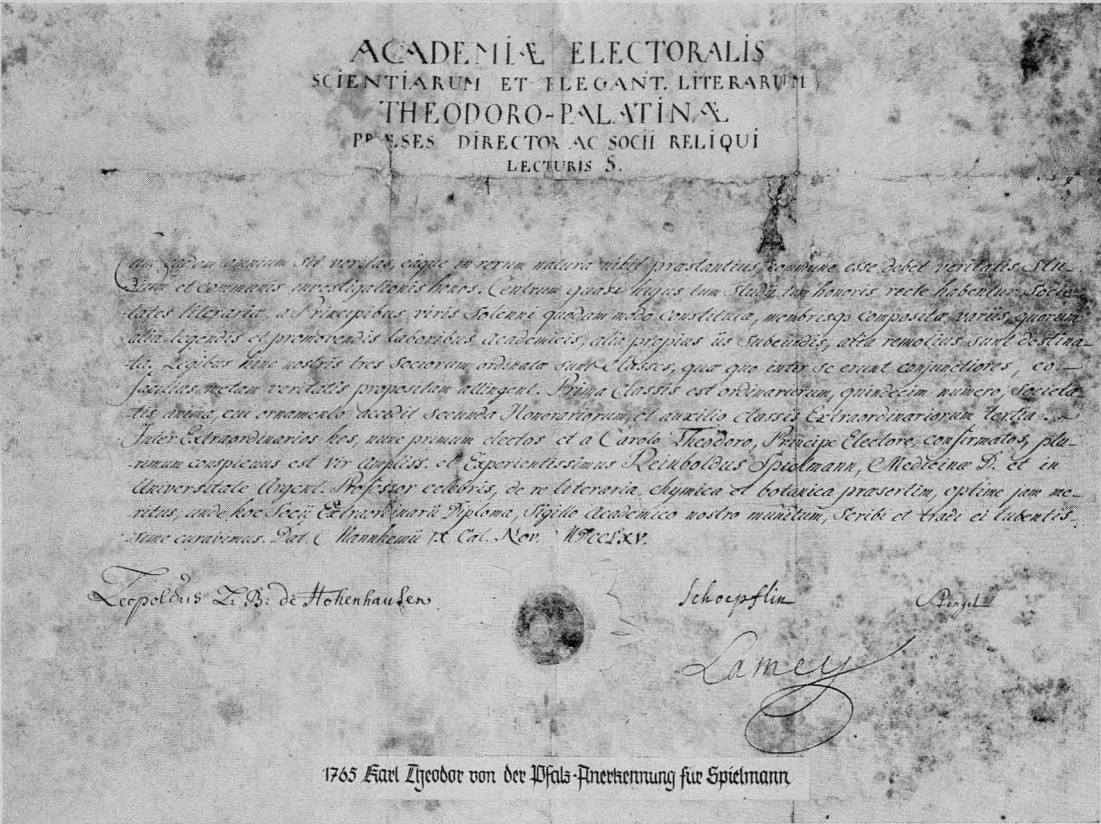 ACADEMIÆ ELECTORALIS
SCIENTIARUM ET ELEGANT. LITERARUM
THEODORO-PALATINÆ
PRÆSES DIRECTOR AC SOCII RELIQUI
LECTURIS S.
Cum eadem omnium sit veritas, eaque in rerum natura nihil præstantius, commune esse debet veritatis stu-
dium et communis investigationis honos. Centrum quasi hujus tum studii tum honoris recte habentur Socie-
tates literariæ, a Principibus viris solenni quodam modo constitutæ, membrisq; compositæ variis, quorum
alia legendis et promovendis laboribus academicis, alia propius iis subeundis, alia remotius sunt destina-
ta. Legibus hinc nostris tres Sociorum ordinatæ sunt Classes, quæ quo inter se erunt conjunctiores, eo
facilius metam veritatis propositam attingent. Prima Classis est ordinariorum, quindecim numero, Societa-
tis anima, cui ornamento accedit secunda Honorariorum, et auxilio classis Extraordinariorum tertia.
Inter Extraordinarios hos, nunc primum electos et a Carolo Theodoro, Principe Electore, confirmatos, plu-
rimum conspicuus est Vir Ampliss. et Experientissimus Reinboldus Spielmann, Medicinæ D. et in
Universitate Argent. Professor celebris, de re literaria, chymica et botanica præsertim, optime jam me-
ritus, unde hoc Socii Extraordinarii Diploma, Sigillo Academico nostro munitum, scribi et tradi ei lubentis-
sime curavimus. Dat. Mannhemii IX Cal. Nov. MDCCLXV.
Leopoldus L. B. de Hohenhausen
Schoepflin
Lamey
1765 Karl Theodor von der Pfalz-Anerkennung für Spielmann